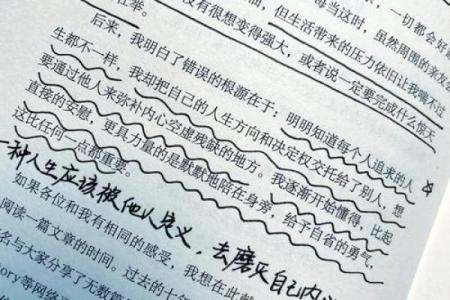 每当这时,虽然周围的亲友
一切都会好
没有很想变得强大,或者说一定要完成什么惊天
但生活带来的压力依旧让我喘不过
后来,我明白了错误的根源在于:明明知道每个人追来的人
生都不一样,我却把自己的人生方向和决定权交托给了别人,想
要通过他人来弥补内心空虚残缺的地方。我逐渐开始懂得,比起
直接的安慰,更具力量的是默默地陪在身旁,给予自省的勇气,
这比任何一点都重要。
一种人生应该被他人定义,去磨灭自己内心
如果各位和我有相同的感受,我想在此
阅读一篇文章的时间。过去的七年
名与大家分享了无数篇
ory等网络